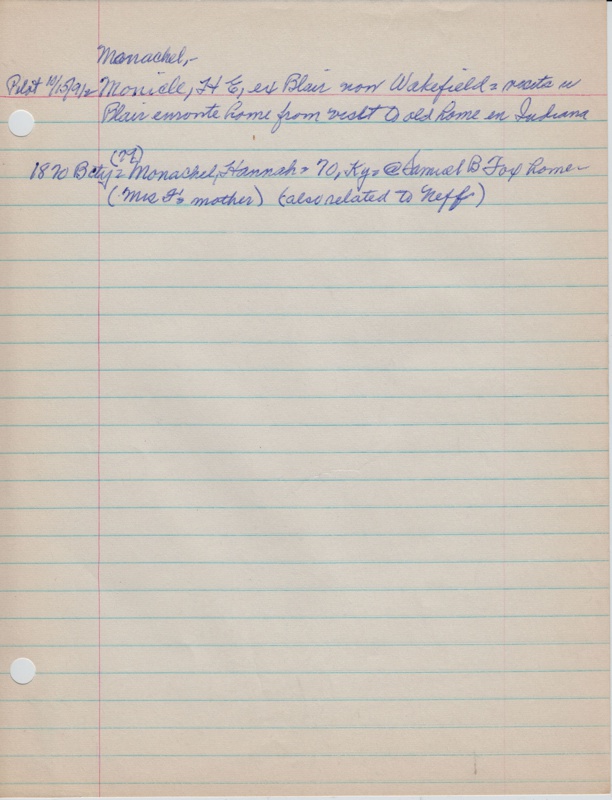 Monachel,-
Pilot 10/15/912 Monicle, H E, ex Blair now Wakefield = visits in
Blair enroute home from visit to old home in Indiana
(N)
1870 Bcty = Monachel, Hannah = 70, Ky = @ Samuel B Fox home -
(Mrs F's mother) (also related to Neff)